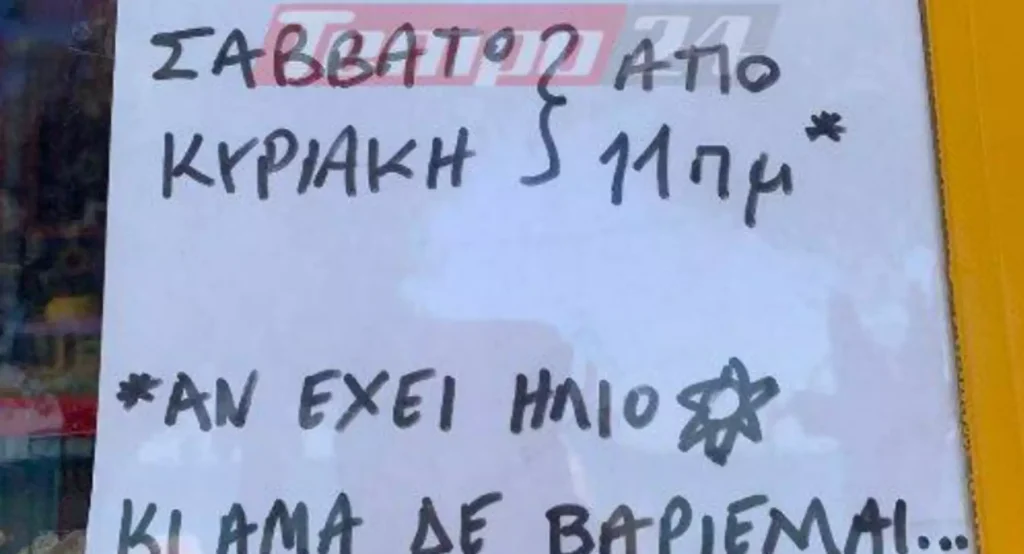 Tempo24
ΣΑΒΒΑΤΟ } ΑΠΟ
ΚΥΡΙΑΚΗ } 11πμ*
*ΑΝ ΕΧΕΙ ΗΛΙΟ
ΚΙ ΑΜΑ ΔΕ ΒΑΡΙΕΜΑΙ...